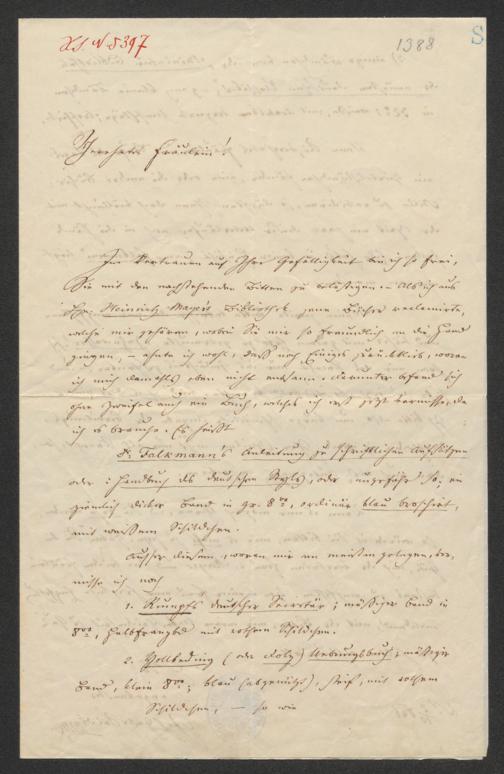 H.I.N. 8397
1388
S
Verehrtes Fräulein!
Im Vertrauen auf Ihre Gefälligkeit bin ich so frei,
Sie mit den nachstehenden Bitten zu belästigen. – Als ich aus
Hrn. Heinrich Mayer's Bibliothek jene Bücher reclamirte,
welche mir gehören, wobei Sie mir so freundlich an die Hand
gingen, – ahnte ich wohl, daß noch Einiges zurückblieb, woran
ich mich damahls eben nicht entsann. Darunter befand sich
ohne Zweifel auch ein Buch, welches ich erst jetzt vermisse, da
ich es brauche. Es heißt
Dr. Falkmann's Anleitung zu schriftlichen Aufsätzen
oder: Handbuch des deutschen Styles, oder ungefähr so; ein
ziemlich dicker Band in gr. 8vo, ordinär blau broschirt,
mit weißem Schildchen.
Ausser diesem, woran mir am meisten gelegen, ver-
misse ich noch
1. Rumpfs deutscher Secretär; mäßiger Band in
8vo, Halbfranzbd mit rothem Schildchen.
2. Vollbeding (oder Dolz) Uebungsbuch; mäßiger
Band, klein 8vo; blau (abgenützt), steif, mit rothem
Schildchen, – so wie